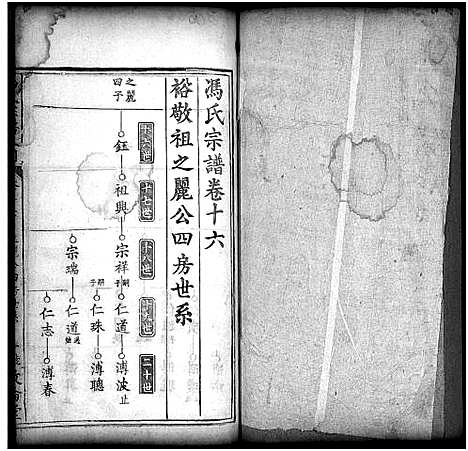 馮氏宗譜卷十六
裕敬祖之麗公四房世系
十六世
十七世
十八世
十九世
二十世
之麗四子
鈺
祖興
宗祥
嗣子
仁道
溥波
止
嗣子
仁珠
溥聰
宗瑞
仁道
仁志
溥春